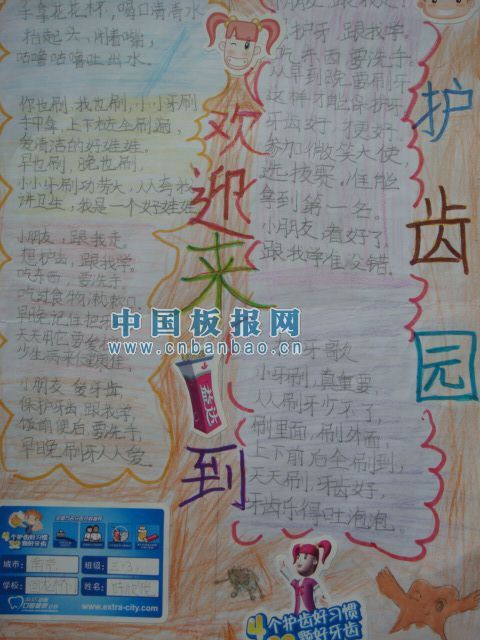 手拿花花杯，喝口清清水
抬起头，闭着嘴，
咕噜咕噜吐出水。
你也刷，我也刷，小小牙刷
手中拿，上下左右全刷遍，
爱清洁的好娃娃。
早也刷，晚也刷，
小小牙刷功劳大，人人夸我
讲卫生，我是一个好娃娃
小朋友，跟我走。
想护齿，跟我学。
吃东西，要洗手，
吃过食物漱漱口。
小朋友，爱牙齿，
保护牙齿跟我学，
饭前便后要洗手，
早晚刷牙人人爱。
欢迎来到
护齿园
小朋友，跟我学，
护牙，跟我学。
吃东西要洗手
从早到晚要刷牙
这样才能保护牙
牙齿好，便好
参加微笑大使，
选拔赛，准能
拿到第一名。
小朋友看好了。
跟我学准没错。
牙歌
小牙刷，真重要
人人刷牙少不了，
刷里面，刷外面，
上下前后全刷到，
天天刷，牙齿好，
牙齿乐得吐泡泡。
中国板报网
www.cnbanbao.cn
益达
4个护齿好习惯
颗好牙齿
城市：
班级：三(3)
学校：
姓名：
www.extra-city.com
4个护齿好习惯
颗好牙齿